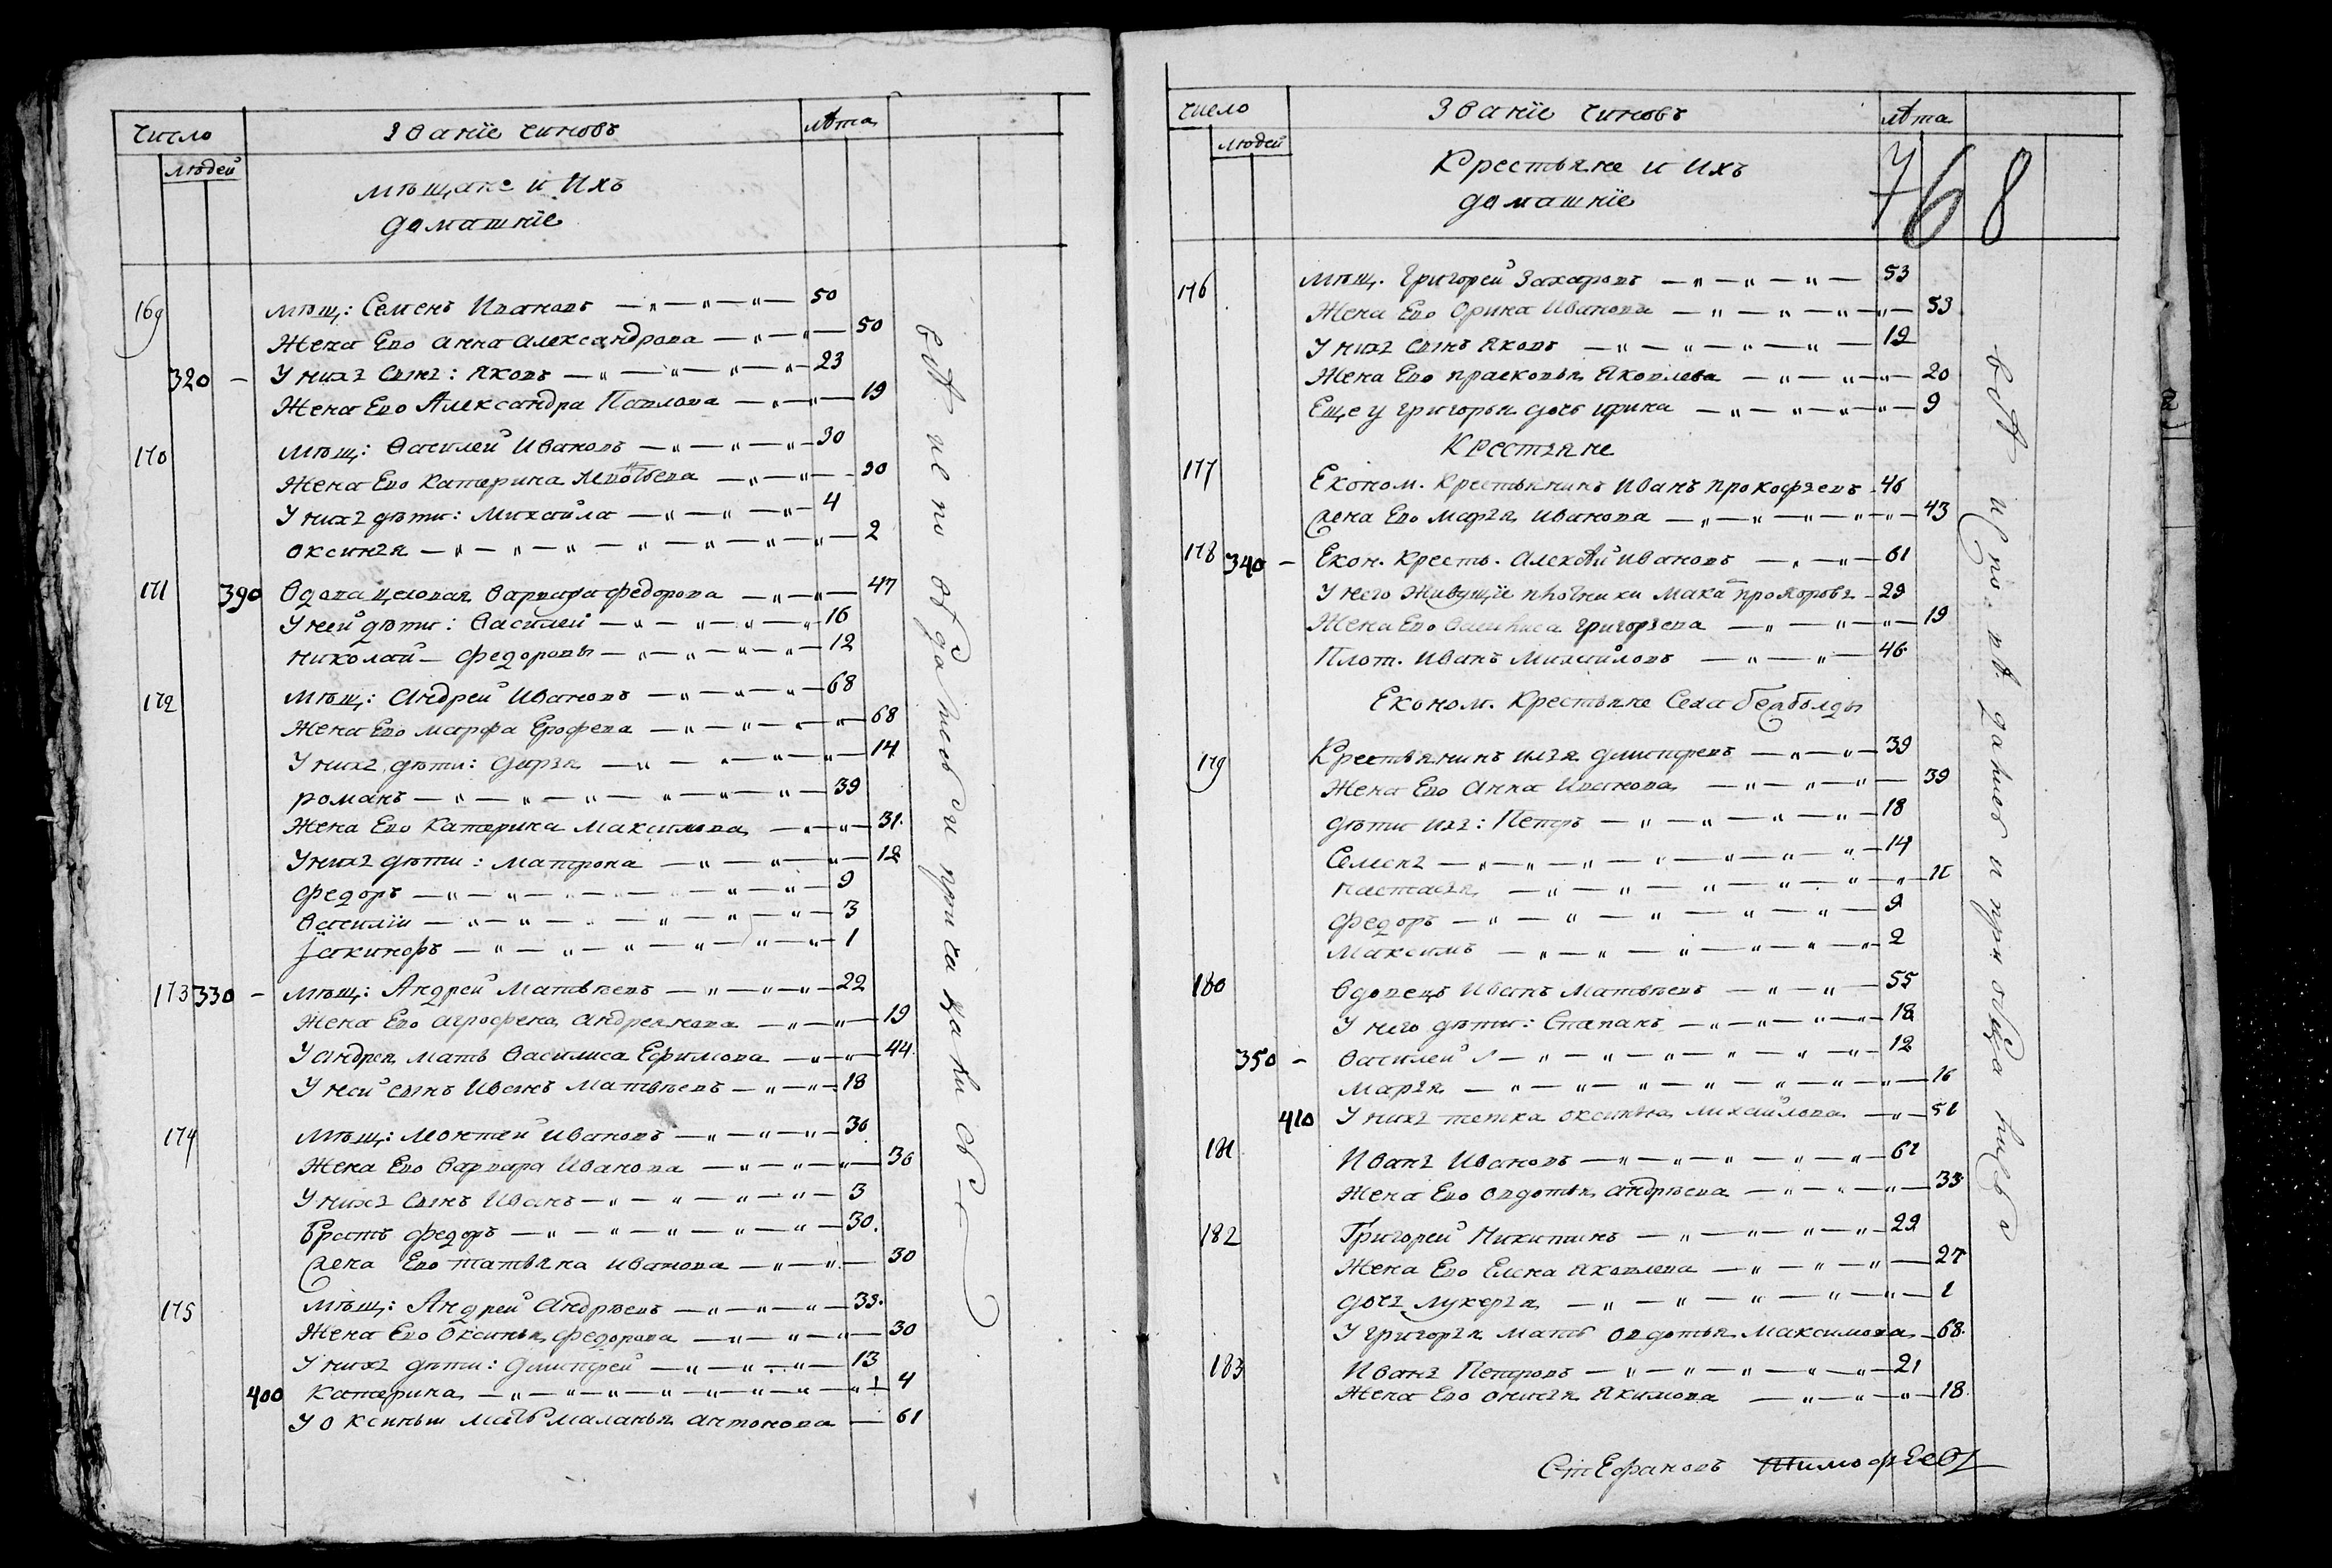 Число Званїе чиновъ лѣта
людей
мѣщане и Ихъ
домашнїе
169 мѣщ: Семенъ Ивановъ 50
Жена Ево Анна Александрова 50
320 У нихъ сынъ: Яковъ 23
Жена Ево Александра Павлова 19
170 мѣщ: Василей Ивановъ 30
Жена Ево Катерина 30
У нихъ дѣти: Михайла 4
Оксинья 2
171 390 Вдова Варвара Федорова 47
У ней дѣти: Василей 16
Николай Федоровы 12
172 мѣщ: Андрей Ивановъ 68
Жена Ево Марфа Ерофева 68
У нихъ дѣти: Дарья 14
Романъ 39
Жена Ево Катерина Максимова 31
У нихъ дѣти: Матрона 12
Федоръ 9
Василїй 3
Їакинфъ 1
173 330 мѣщ: Андрей Матвѣевъ 22
Жена Ево Агрофена Андреянова 19
У Андрея мать Василиса Ефимова 44
У ней сынъ Иванъ Матвѣевъ 18
174 мѣщ: Иванов 36
Жена Ево Варвара Иванова 36
У нихъ сынъ Иванъ 3
Братъ Федоръ 30
Жена Ево Татьяна Иванова 30
175 мѣщ: Андрей Андрѣевъ 33
Жена Ево Оксинья Федорова 30
У нихъ дѣти: Дмитрей 13
400 Катерина 4
У Оксиньи мать Маланья Антонова 61
всѣ исповѣдались и причащались
Число Званїе чиновъ лѣта
людей
Крестьяне и Ихъ
домашнїе
768
176 мѣщ. Григорей Захаровъ 53
Жена Ево Орина Иванова 53
У нихъ сынъ Яковъ 19
Жена Ево Прасковья Яковлева 20
Еще у Григорья дочь Ирина 9
Крестьяне
177 Економ. Крестьянинъ Иванъ Прокофьевъ 46
Жена Ево Марья Иванова 43
178 340 Екон. Кресть. Алексѣй Ивановъ 61
У него Живущїе 29
Жена Ево Григорьева 19
Плот. Иванъ Михайловъ 46
Економ. Крестьяне Села
179 Крестьянинъ Илья Дмитревъ 39
Жена Ево Анна Иванова 39
Дѣти ихъ: Петръ 18
Семенъ 14
Настасья 11
Федоръ 9
Максимъ 2
180 Вдовецъ Иванъ Матвѣевъ 55
У него дѣти: Степанъ 18
350 Василей 12
Марья 16
410 У нихъ тетка Оксинья Михайлова 51
181 Иванъ Ивановъ 61
Жена Ево Овдотья Андрѣева 33
182 Григорей Никитинъ 29
Жена Ево Елена Яковлева 27
Дочь Лукерья 1
У Григорья мать Овдотья Максимова 68
183 Иванъ Петровъ 21
Жена Ево Якимова 18
Стефановъ Тимофеевъ